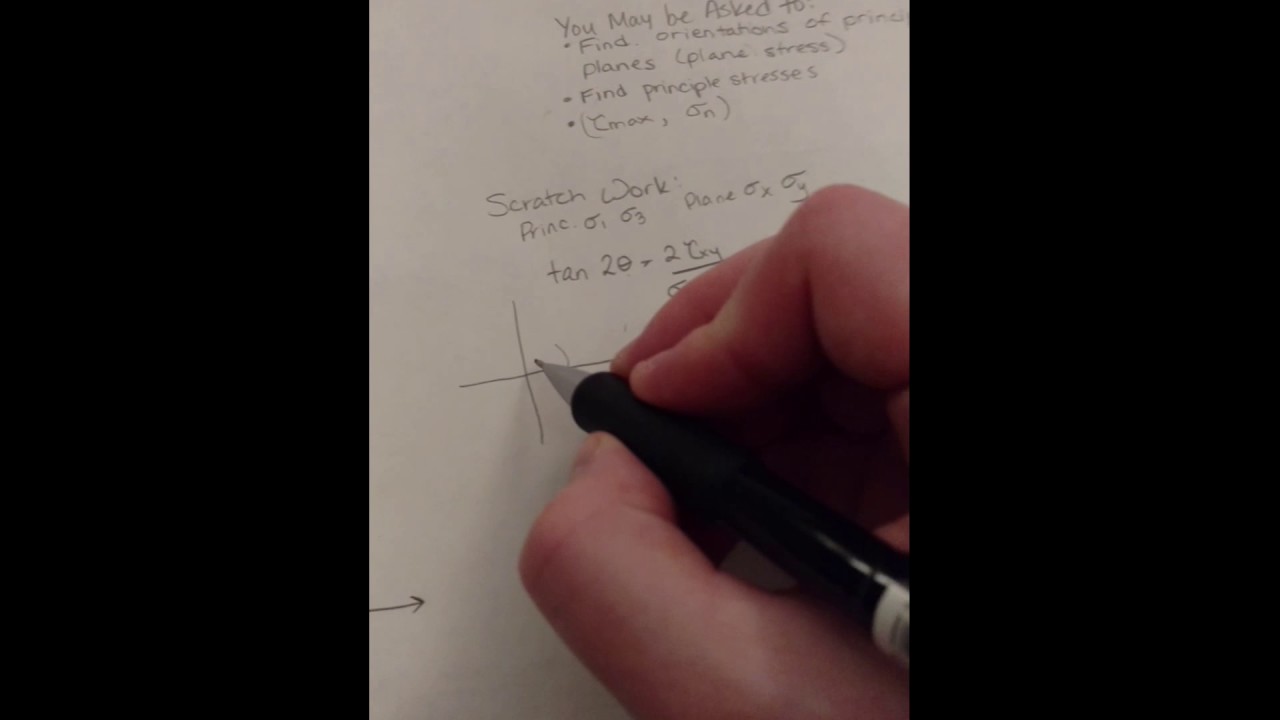 You May be Asked to:
• Find orientations of princi
planes (plane stress)
• Find principle stresses
• (τmax, σn)
Scratch Work:
Princ. σ₁ σ₃ Plane σx σy
tan 2θ = 2τxy
σ